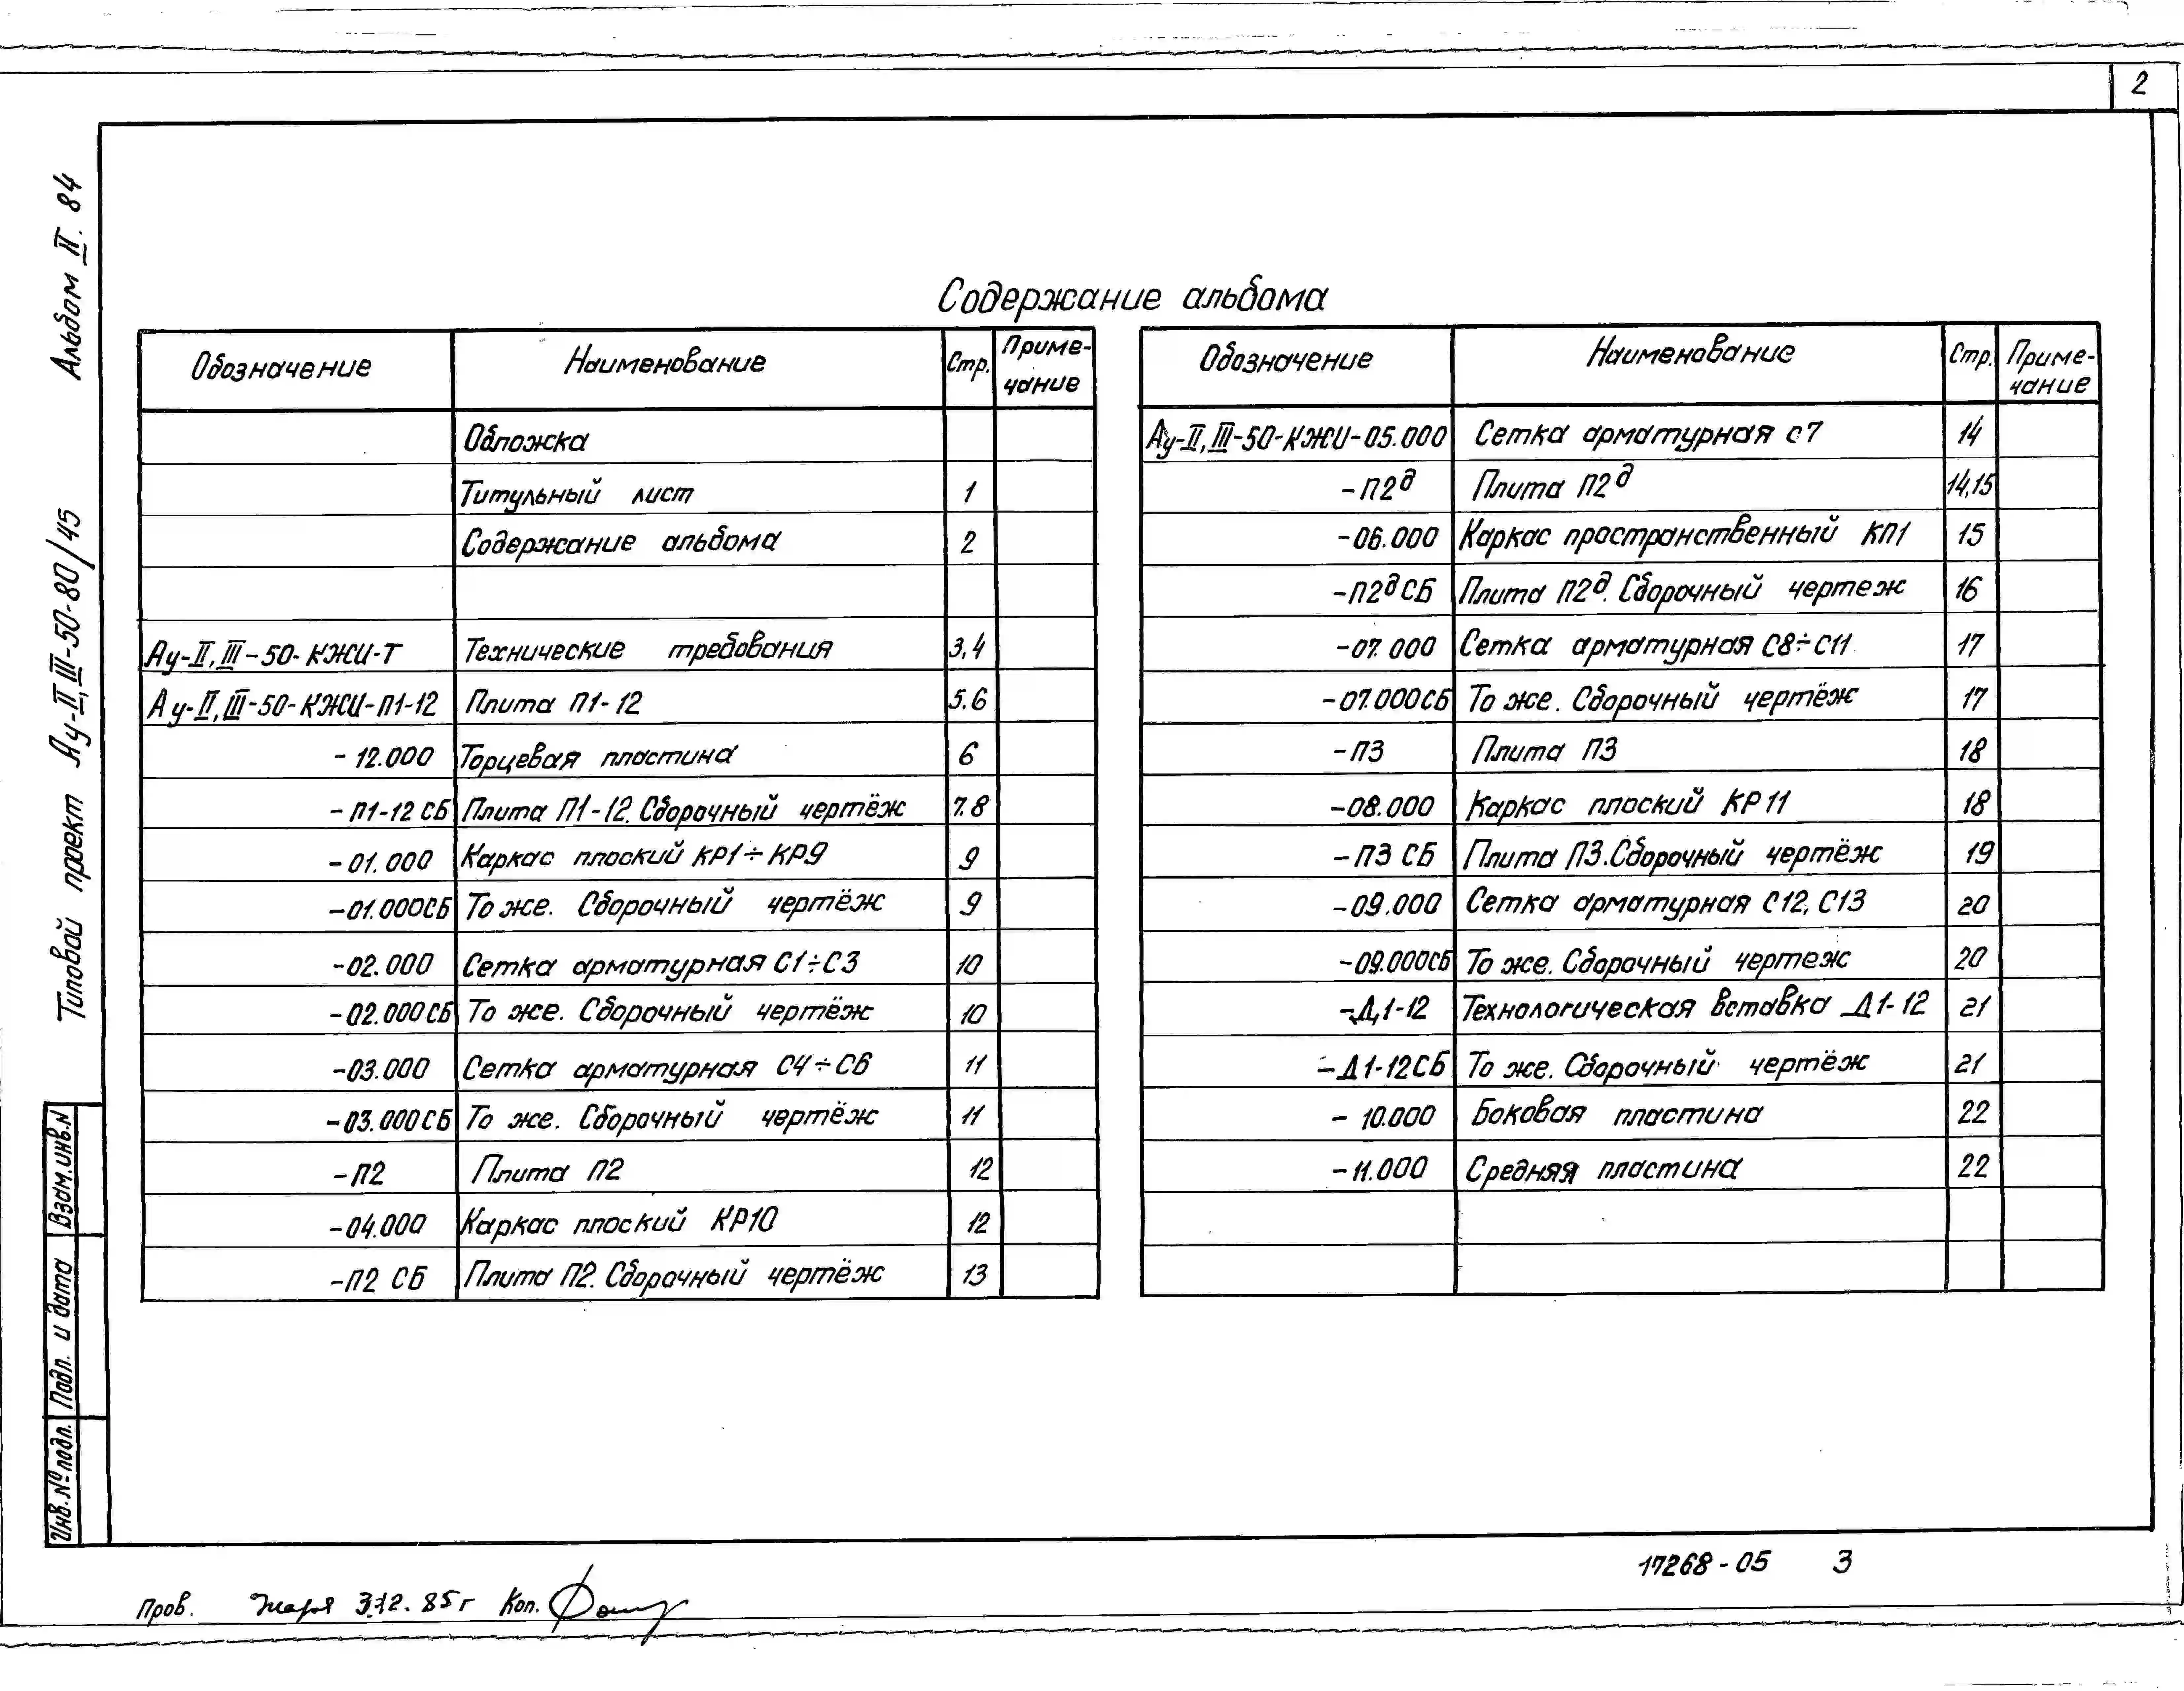 2
Альбом II. 84
Типовой проект Ау-II,III-50-80/45
Содержание альбома
Обозначение Наименование Стр. Примечание
Обложка
Титульный лист 1
Содержание альбома 2
Ау-II,III-50-КЖИ-Т Технические требования 3,4
Ау-II,III-50-КЖИ-П1-12 Плита П1-12 5.6
- 12.000 Торцевая пластина 6
- П1-12 СБ Плита П1-12. Сборочный чертёж 7.8
- 01.000 Каркас плоский КР1÷КР9 9
-01.000СБ То же. Сборочный чертёж 9
-02.000 Сетка арматурная С1÷С3 10
-02.000СБ То же. Сборочный чертёж 10
-03.000 Сетка арматурная С4÷С6 11
-03.000СБ То же. Сборочный чертёж 11
-П2 Плита П2 12
-04.000 Каркас плоский КР10 12
-П2 СБ Плита П2. Сборочный чертёж 13
Обозначение Наименование Стр. Примечание
Ау-II,III-50-КЖИ-05.000 Сетка арматурная с7 14
-П2д Плита П2д 14,15
-06.000 Каркас пространственный КП1 15
-П2дСБ Плита П2д. Сборочный чертеж 16
-07.000 Сетка арматурная С8÷С11 17
-07.000СБ То же. Сборочный чертёж 17
-П3 Плита П3 18
-08.000 Каркас плоский КР11 18
-П3 СБ Плита П3.Сборочный чертёж 19
-09.000 Сетка арматурная С12, С13 20
-09.000СБ То же. Сборочный чертеж 20
-Д1-12 Технологическая вставка Д1-12 21
-Д1-12СБ То же. Сборочный чертёж 21
- 10.000 Боковая пластина 22
-11.000 Средняя пластина 22
Взам.инв.N
Подп. и дата
Инв.№подл.
17268-05 3
Пров. 3.12.85г Коп.